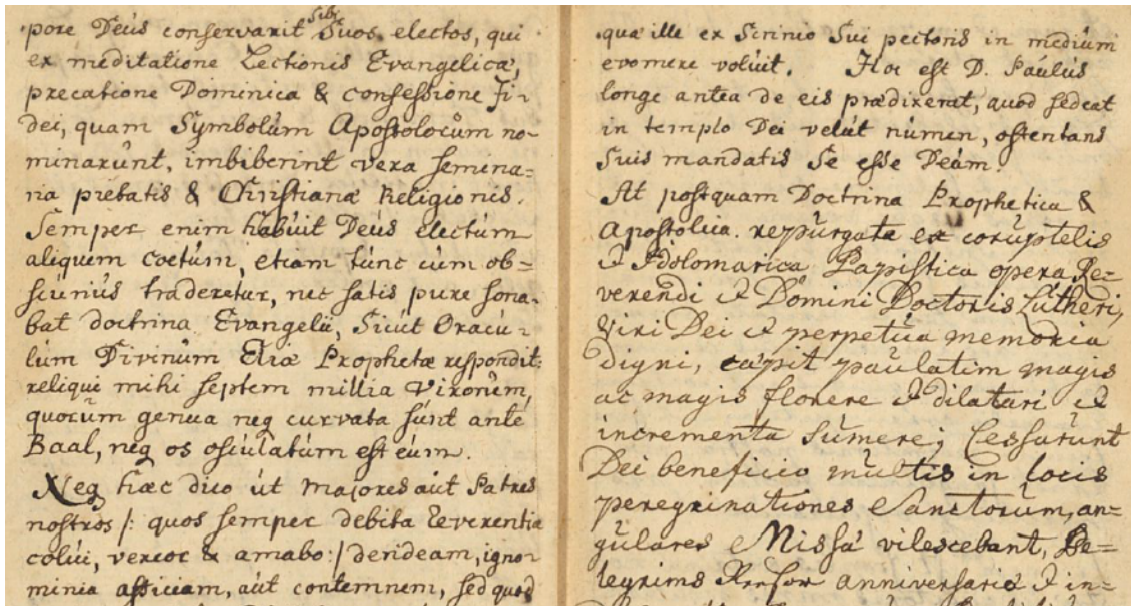 pore Deus conservarit Sibi Suos electos, qui
ex meditatione Lectionis Evangelicæ,
precatione Dominica & confessione Fi-
dei, quam Symbolum Apostolocum no-
minarunt, imbiberint vera semina=
ria pietatis & Christianæ Religionis.
Semper enim habuit Deus electum
aliquem coetum, etiam tunc cum ob=
scurius traderetur, nec satis pure sona-
bat doctrina Evangelii, Sicut Oracu-
lum Divinum Eliæ Prophetæ respondit:
reliqui mihi septem millia Virorum,
quorum genua neq curvata sunt ante
Baal, neq os osculatum est eum.
Neq hæc dico ut majores aut Patres
nostros /: quos semper debita Reverentia
colui, vereor & amabo :/ derideam, igno-
minia afficiam, aut contemnem, sed quod
quæ ille ex Scrinio Sui pectoris in medium
evomere voluit. Hoc est D. Paulus
longe antea de eis prædixerat, quod sedeat
in templo Dei velut numen, ostentans
Suis mandatis Se esse Deum.
At postquam Doctrina Prophetica &
Apostolica. repurgata ex coruptelis
& Idolomarica Papistica opera Re-
verendi & Domini Doctoris Lutheri,
Viri Dei & perpetua memoria
digni, cæpit paulatim magis
ac magis florere & dilatari &
incrementa Sumere; Cessarunt
Dei beneficio multis in locis
peregrinationes Sanctorum, an-
gulares Missæ vilescebant,
anniversaria & in-